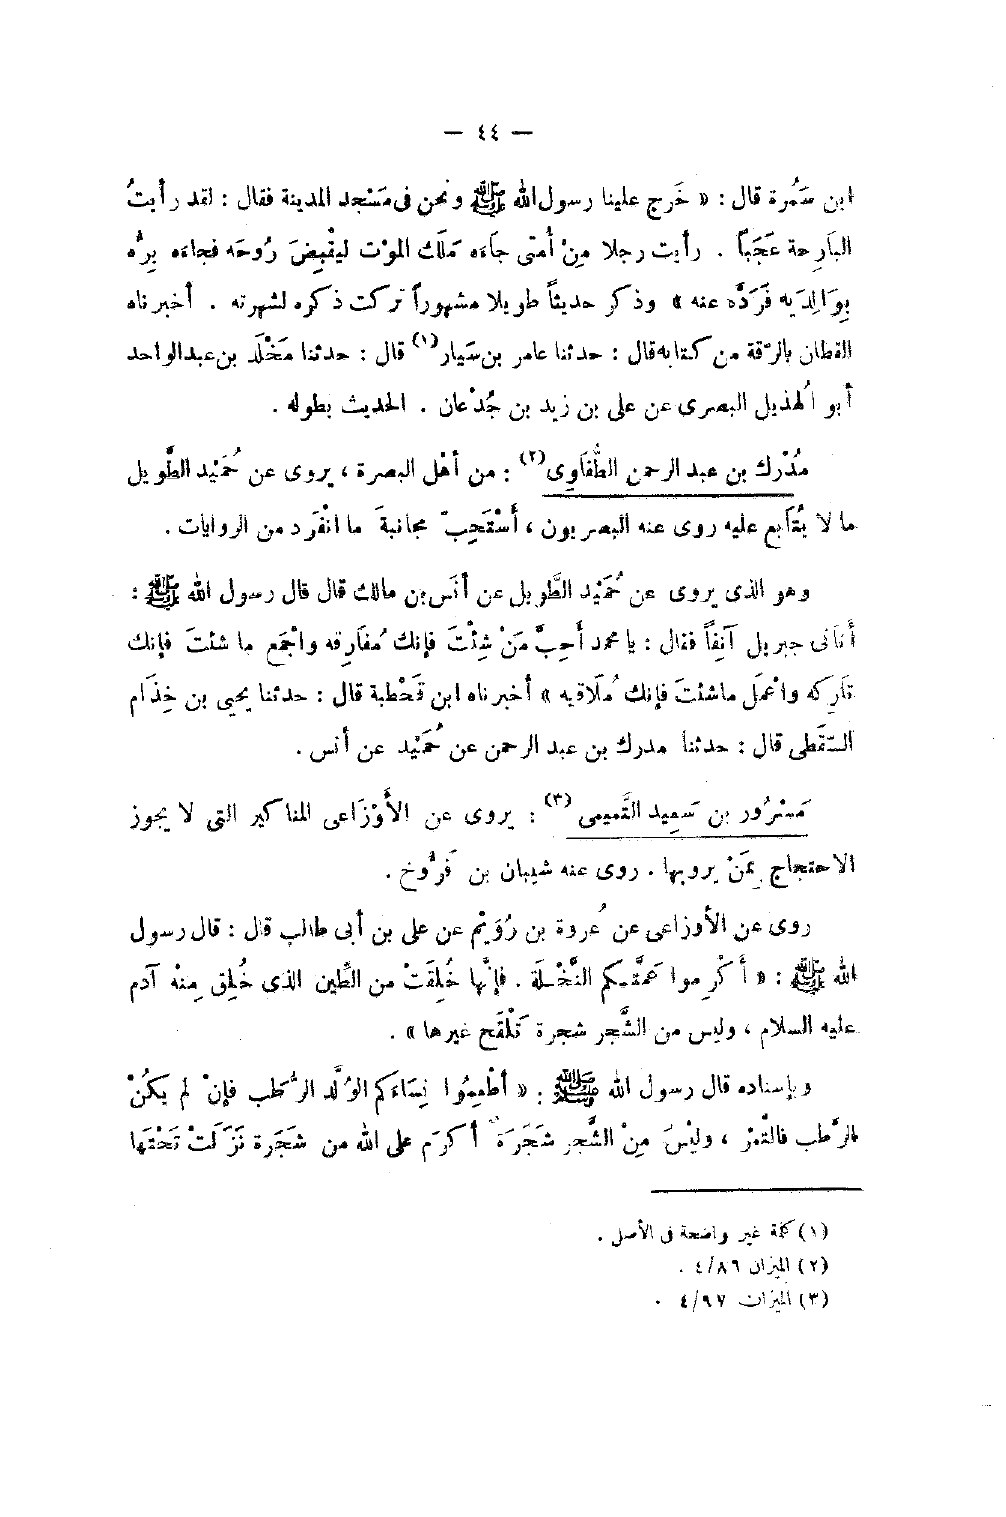 — ٤٤ —
ابن سَمُرة قال : « خَرج علينا رسول الله ﷺ ونحن فى مَسْجد المدينة فقال : لقد رأيتُ
البَارِحة عَجَباً . رأيت رجلا مِنْ أمتى جاءَه مَلَك الموْت ليقْبِضَ رُوحَه فجاءه بِرُّه
بِوَالِدَيه فَرَدَّه عنه » وذكر حديثاً طويلا مشهوراً تركت ذكره لشهرته . أخبرناه
القطان بالرّقة من كتابه قال : حدثنا عامر بن سَيار(١) قال : حدثنا مَخْلَد بن عبد الواحد
أبو الُهذيل البصرى عن على بن زيد بن جُدْعان . الحديث بطوله .
مُدْرك بن عبد الرحمن الطُّفَاوِى(٢) : من أهْل البصرة ، يروى عن حُمَيْد الطَّويل
ما لا يُتَابع عليه روى عنه البصريون ، أَسْتَحِبّ مجانبةَ ما انْفَرد من الروايات .
وهو الذى يروى عن حُمَيْد الطَّويل عن أنَس بن مالك قال قال رسول الله ﷺ :
أتانى جبريل آنِفاً فقال : يا محمد أحِبَّ مَنْ شِئْتَ فإنك مُفارِقه واجْمَع ما شئتَ فإنك
تَارِكه واعْمَل ماشئتَ فإنك مُلَاقيه » أخبرناه ابن قَحْطبة قال : حدثنا يحيى بن خِذَام
السّقَطى قال : حدثنا مدرك بن عبد الرحمن عن حُمَيْد عن أنس .
مَسْرُور بن سَعِيد التَّميمى(٣) : يروى عن الأَوْزَاعى المناكير التى لا يجوز
الاحتجاج بمَنْ يرويها . روى عنه شيبان بن فَرُّوخ .
روى عن الأوزاعى عن عُروة بن رُوَيْم عن على بن أبى طالب قال : قال رسول
الله ﷺ : « أَكْرِموا عَمَّتَكم النَّخْلَة . فإنَّها خُلِقَتْ من الطِّين الذى خُلِق مِنْه آدم
عليه السلام ، وليس من الشَّجر شجرة تَلْقَح غيرها » .
وبإسناده قال رسول الله ﷺ : « أطْعِمُوا نِسَاءَكم الوُلَّد الرُّطب فإنْ لم يكُنْ
الرُّطب فالتْمرْ ، وليْسَ مِنْ الشَّجر شَجَرَة أكرَم على الله من شَجَرة نَزَلَتْ تَحْتَها
(١) كلمة غير واضحة فى الأصل .
(٢) الميزان ٤/٨٦ .
(٣) الميزان ٤/٩٧ .